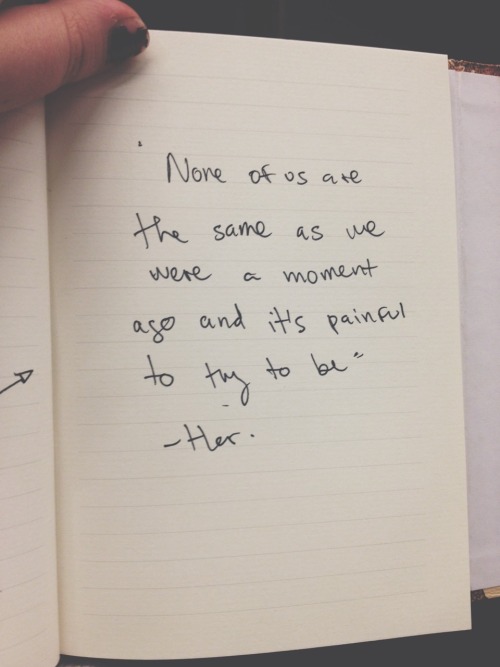 " None of us are
the same as we
were a moment
ago and it's painful
to try to be"
- Her.